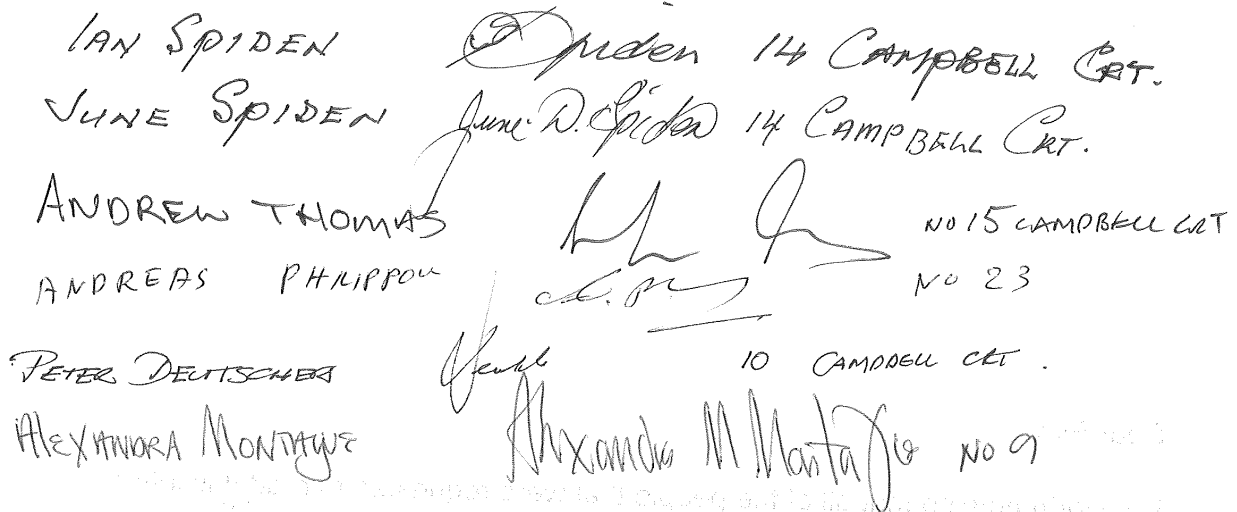 IAN SPIDEN Spiden 14 CAMPBELL CRT.
JUNE SPIDEN June D. Spiden 14 CAMPBELL CRT.
ANDREW THOMAS NO 15 CAMPBELL CRT
ANDREAS PHILIPPOU NO 23
PETER DEUTSCHER 10 CAMPBELL CRT.
ALEXANDRA MONTAGUE Alexandra M Montague NO 9